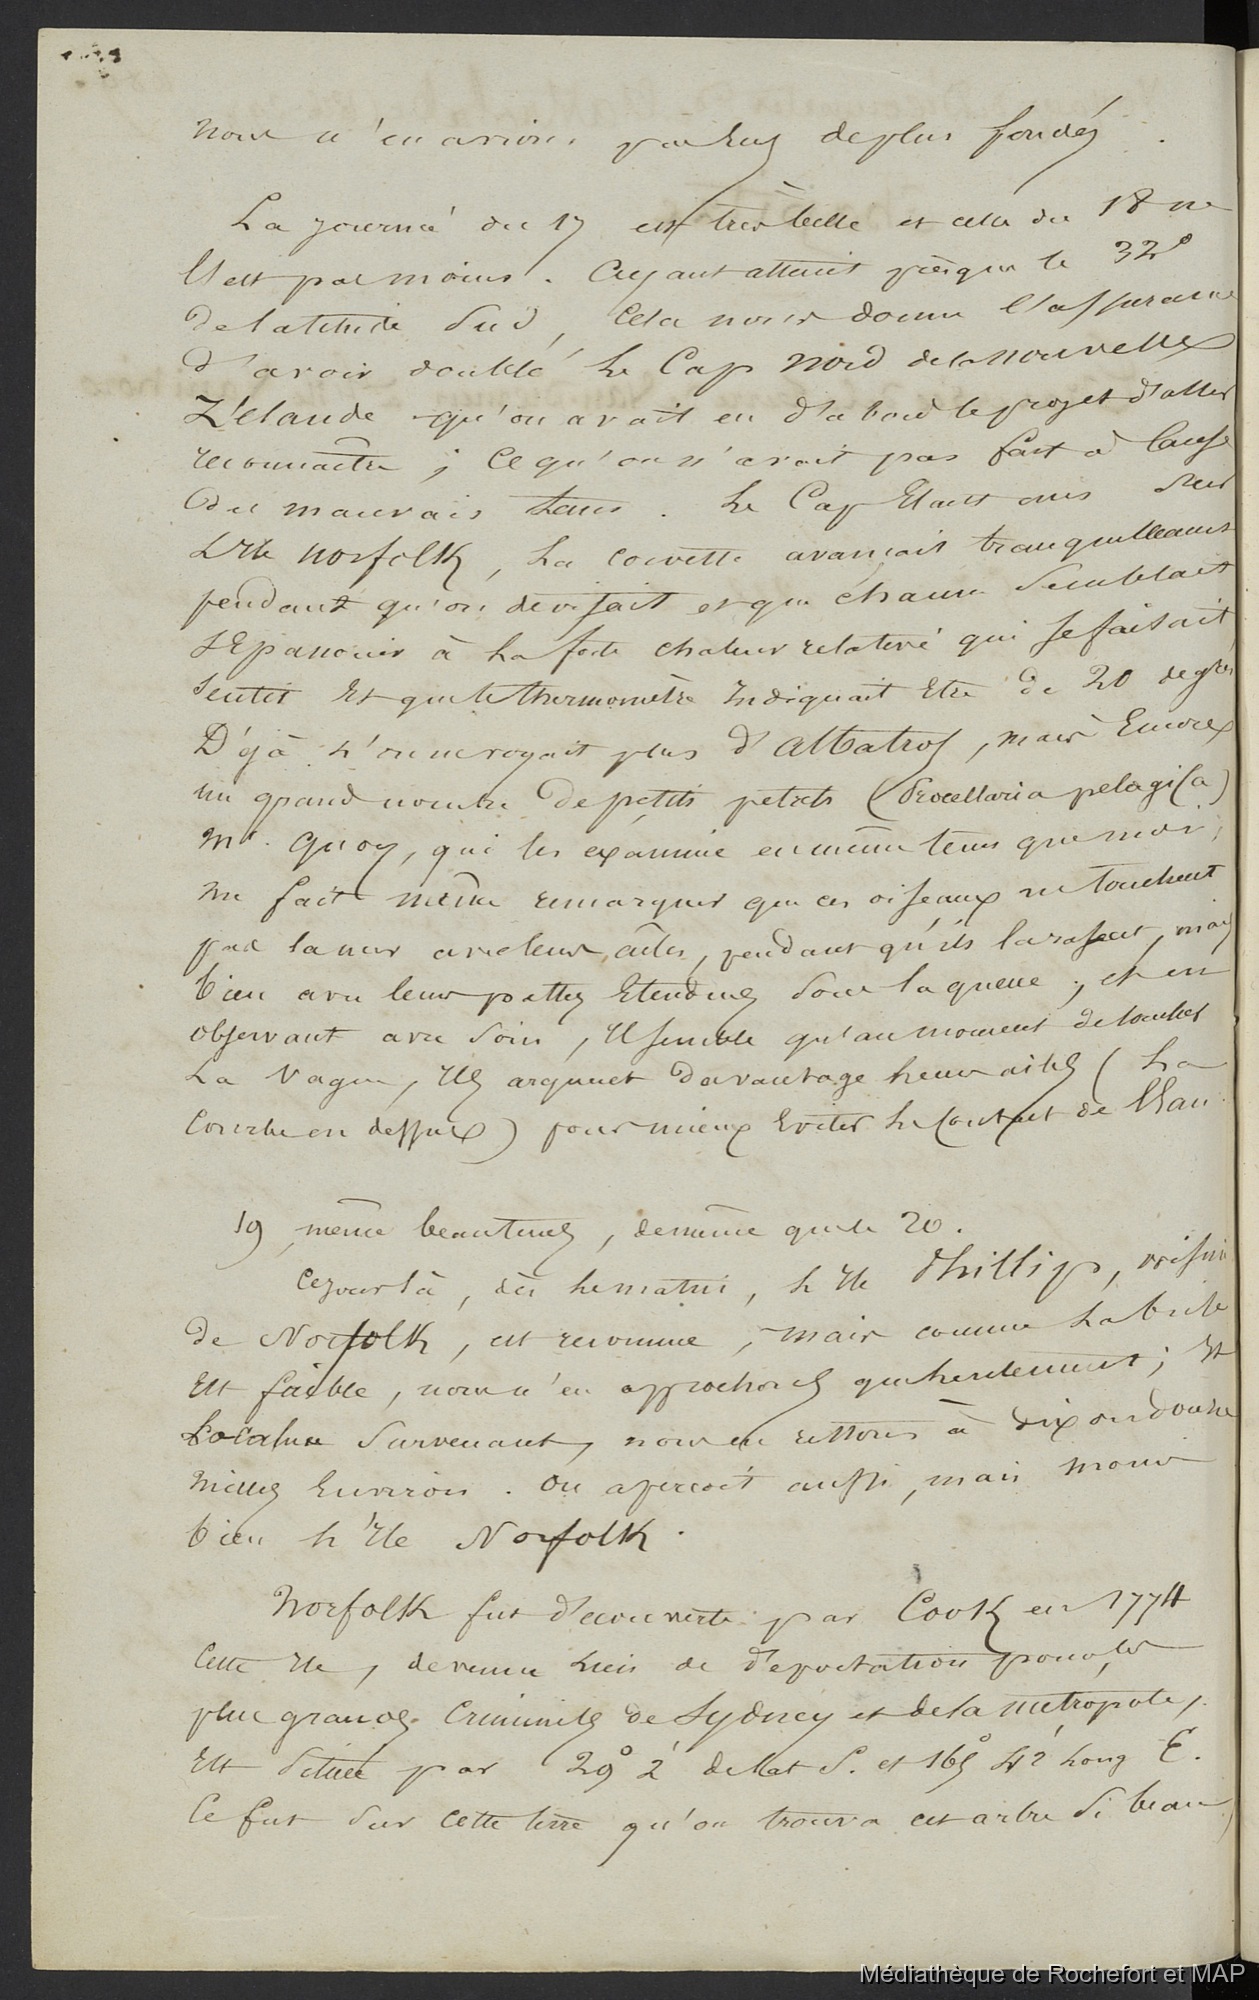 nous n'en avions pas eus de plus fondés.
La journé du 17 est très belle et celle du 18 ne
l'est pas moins. Ayant atteint presque le 32°
de latitude Sud, cela nous donne l'assurance
d'avoir doublé le Cap Nord de la nouvelle
Zélande qu'on avait eu d'abord le projet d'aller
reconnaitre ; ce qu'on n'avait pas fait à cause
du mauvais tems. Le Cap étant mis sur
l'Ile Norfolk, la corvette avançait tranquillement
pendant qu'on devisait et que chacun semblait
s'Epanouir à la forte chaleur relative qui se faisait
sentir et que le thermomètre indiquait Etre de 20 degrés
Déjà l'on ne voyait plus d'Albatros, mais Encore
un grand nombre de petits petrels (Procellaria pelagica)
Mr. Quoy, qui les examine en même tems que moi,
me fait même remarquer que ces oiseaux ne touchent
pas la mer avec leurs ailes, pendant qu'ils la rasent, mais
bien avec leurs pattes Etendues sous la queue ; et en
observant avec soin, Il semble qu'au moment de toucher
La Vague, Ils arquent davantage leurs ailes (La
Courbe en dessus) pour mieux Eviter le Contact de l'Eau.
19 même beau tems, de même que le 20.
Ce jour là, dès le matin, l'Ile Phillip, voisine
de Norfolk, est reconnue, mais comme la brise
est faible, nous n'en approchons que lentement ; et
Le calme survenant, nous en restons à dix ou douze
milles Environ. On aperçoit aussi, mais moins
bien l'Ile Norfolk.
Norfolk fut découverte par Cook en 1774
Cette Ile, devenue lieu de déportation pour les
plus grands Criminels de Sydney et de la métropole,
Est située par 29° 2' de Lat S. et 165° 42' Long E.
Ce fut sur cette terre qu'on trouva cet arbre si beau,
Médiathèque de Rochefort et MAP